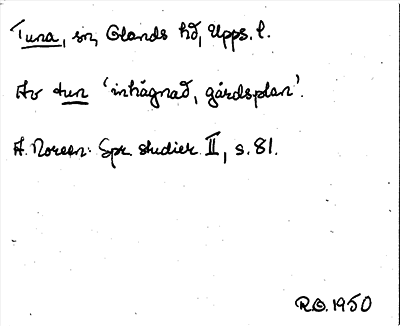 Tuna, sn, Olands hd, Upps. l.
Av tun 'inhägnad, gårdsplan'.
A. Noreen: Spr. studier II, s. 81.
R.O. 1950